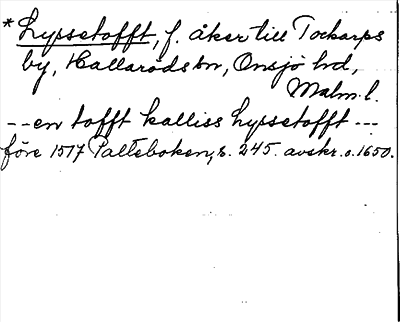 * Lyssetofft, f. åker till Torkarps
by, Hallaröds sn, Onsjö hd,
Malm. l.
-- en tofft kalliss Lyssetofft ---
före 1517 Palteboken, s. 245. avskr. o. 1650.